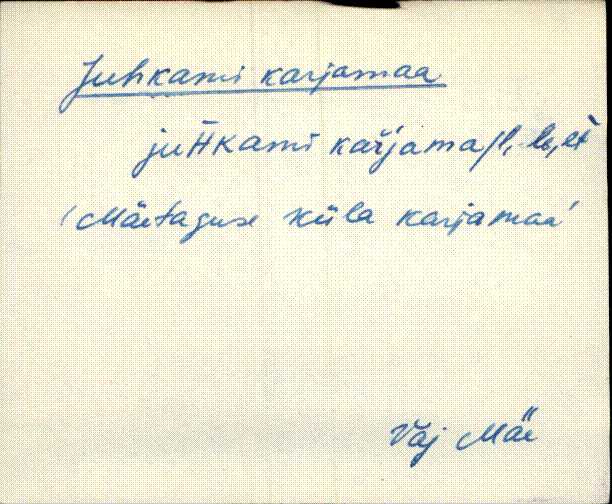 Juhkami karjamaa
juHkami kar̆jama/l, -le, -lt
'Mäetaguse küla karjamaa'
Väj Mäe